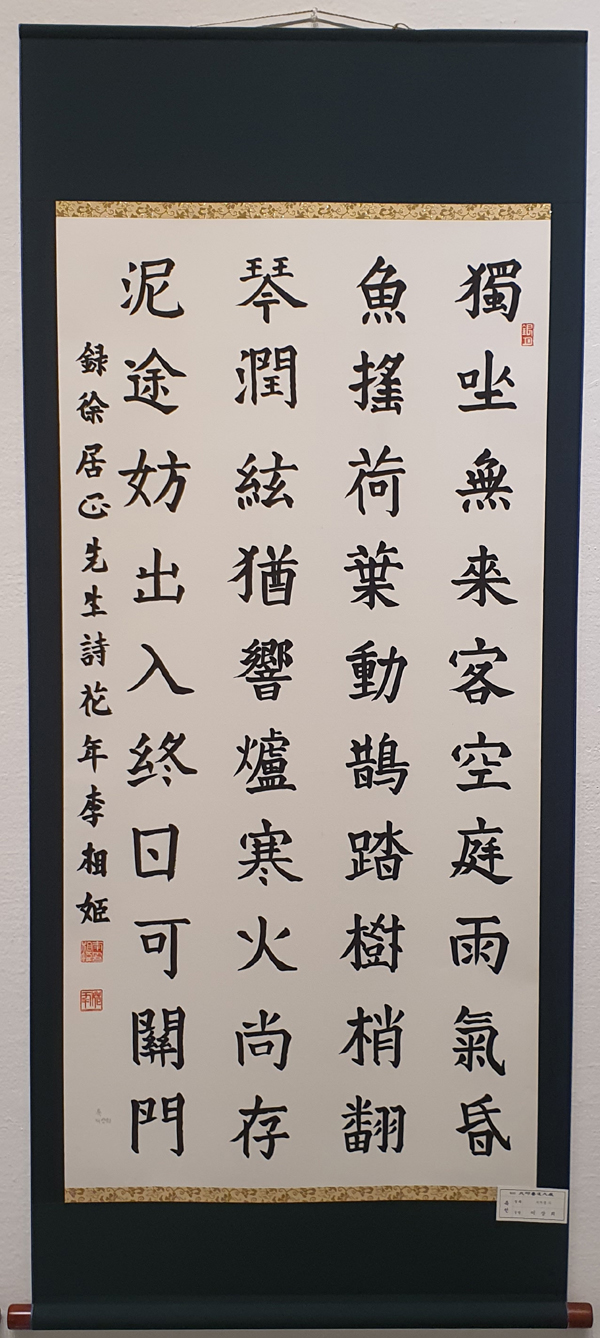 獨坐無來客空庭雨氣昏
魚搖荷葉動鵲踏樹梢翻
琴潤絃猶響爐寒火尚存
泥途妨出入終日可關門
録徐居正先生詩花年李相姬